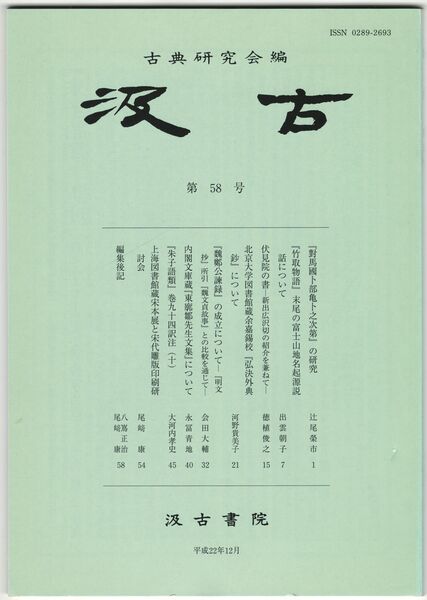 ISSN 0289-2693
古典研究会編
汲古
第 58 号
『對馬國卜部亀卜之次第』の研究 辻尾榮市 1
『竹取物語』末尾の富士山地名起源説
話について 出雲朝子 7
伏見院の書―新出広沢切の紹介を兼ねて― 徳植俊之 15
北京大学図書館蔵余嘉錫校『弘決外典
鈔』について 河野貴美子 21
『魏鄭公諫録』の成立について―『明文
抄』所引『魏文貞故事』との比較を通じて― 会田大輔 32
内閣文庫蔵『東廓鄒先生文集』について 永冨青地 40
『朱子語類』巻九十四訳注（十） 大河内孝史 45
上海図書館蔵宋本展と宋代雕版印刷研
討会 尾﨑康 54
編集後記 八嶌正治
尾﨑康 58
汲古書院
平成22年12月